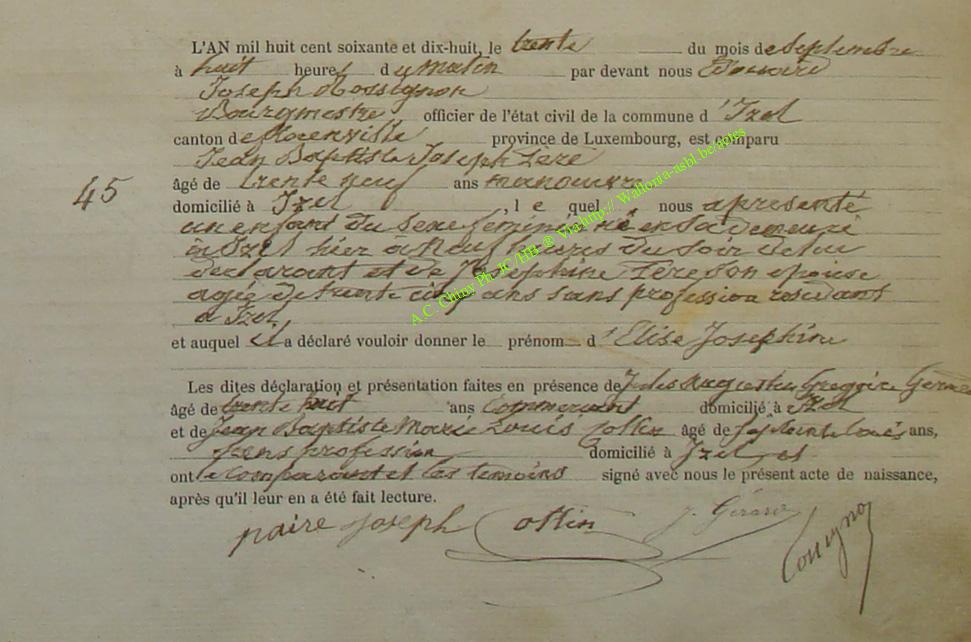 L'AN mil huit cent soixante et dix-huit, le trente du mois de Septembre
à huit heures du matin par devant nous Edouard
Joseph Rossignon
Bourgmestre, officier de l'état civil de la commune d'Izel
canton de Florenville province de Luxembourg, est comparu
Jean Baptiste Joseph
45
âgé de trente neuf ans manoeuvre
domicilié à Izel, le quel nous a présenté
un enfant du sexe féminin né en sa demeure
à Izel hier à Neuf heures du soir de lui
declarant et de Joséphine son epouse
agée de trente cinq ans sans profession residant
à Izel
et auquel il a déclaré vouloir donner le prénom d'Elise Joséphine
Les dites déclaration et présentation faites en présence de Jules Augustin Grégoire Gérard
âgé de trente huit ans Commercant domicilié à Izel
et de Jean Baptiste Marie Louis Collin âgé de ans,
sans profession domicilié à Izel, et
ont le comparant et les temoins signé avec nous le présent acte de naissance,
après qu'il leur en a été fait lecture.
joseph Collin J. Gérard
A.C. Chiny Ph. JC/HB ® Via http:// Wallonia-asbl.be/actes